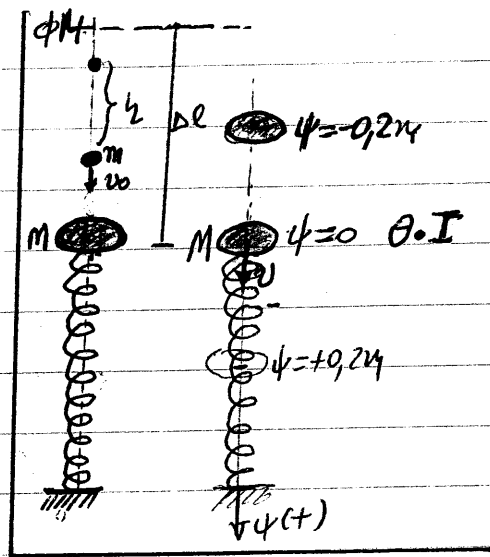 ΦΜ
h
Δℓ
m
υ₀
ψ=-0,2m
M
M ψ=0 Θ.Ι
υ
ψ=+0,2m
ψ(+)